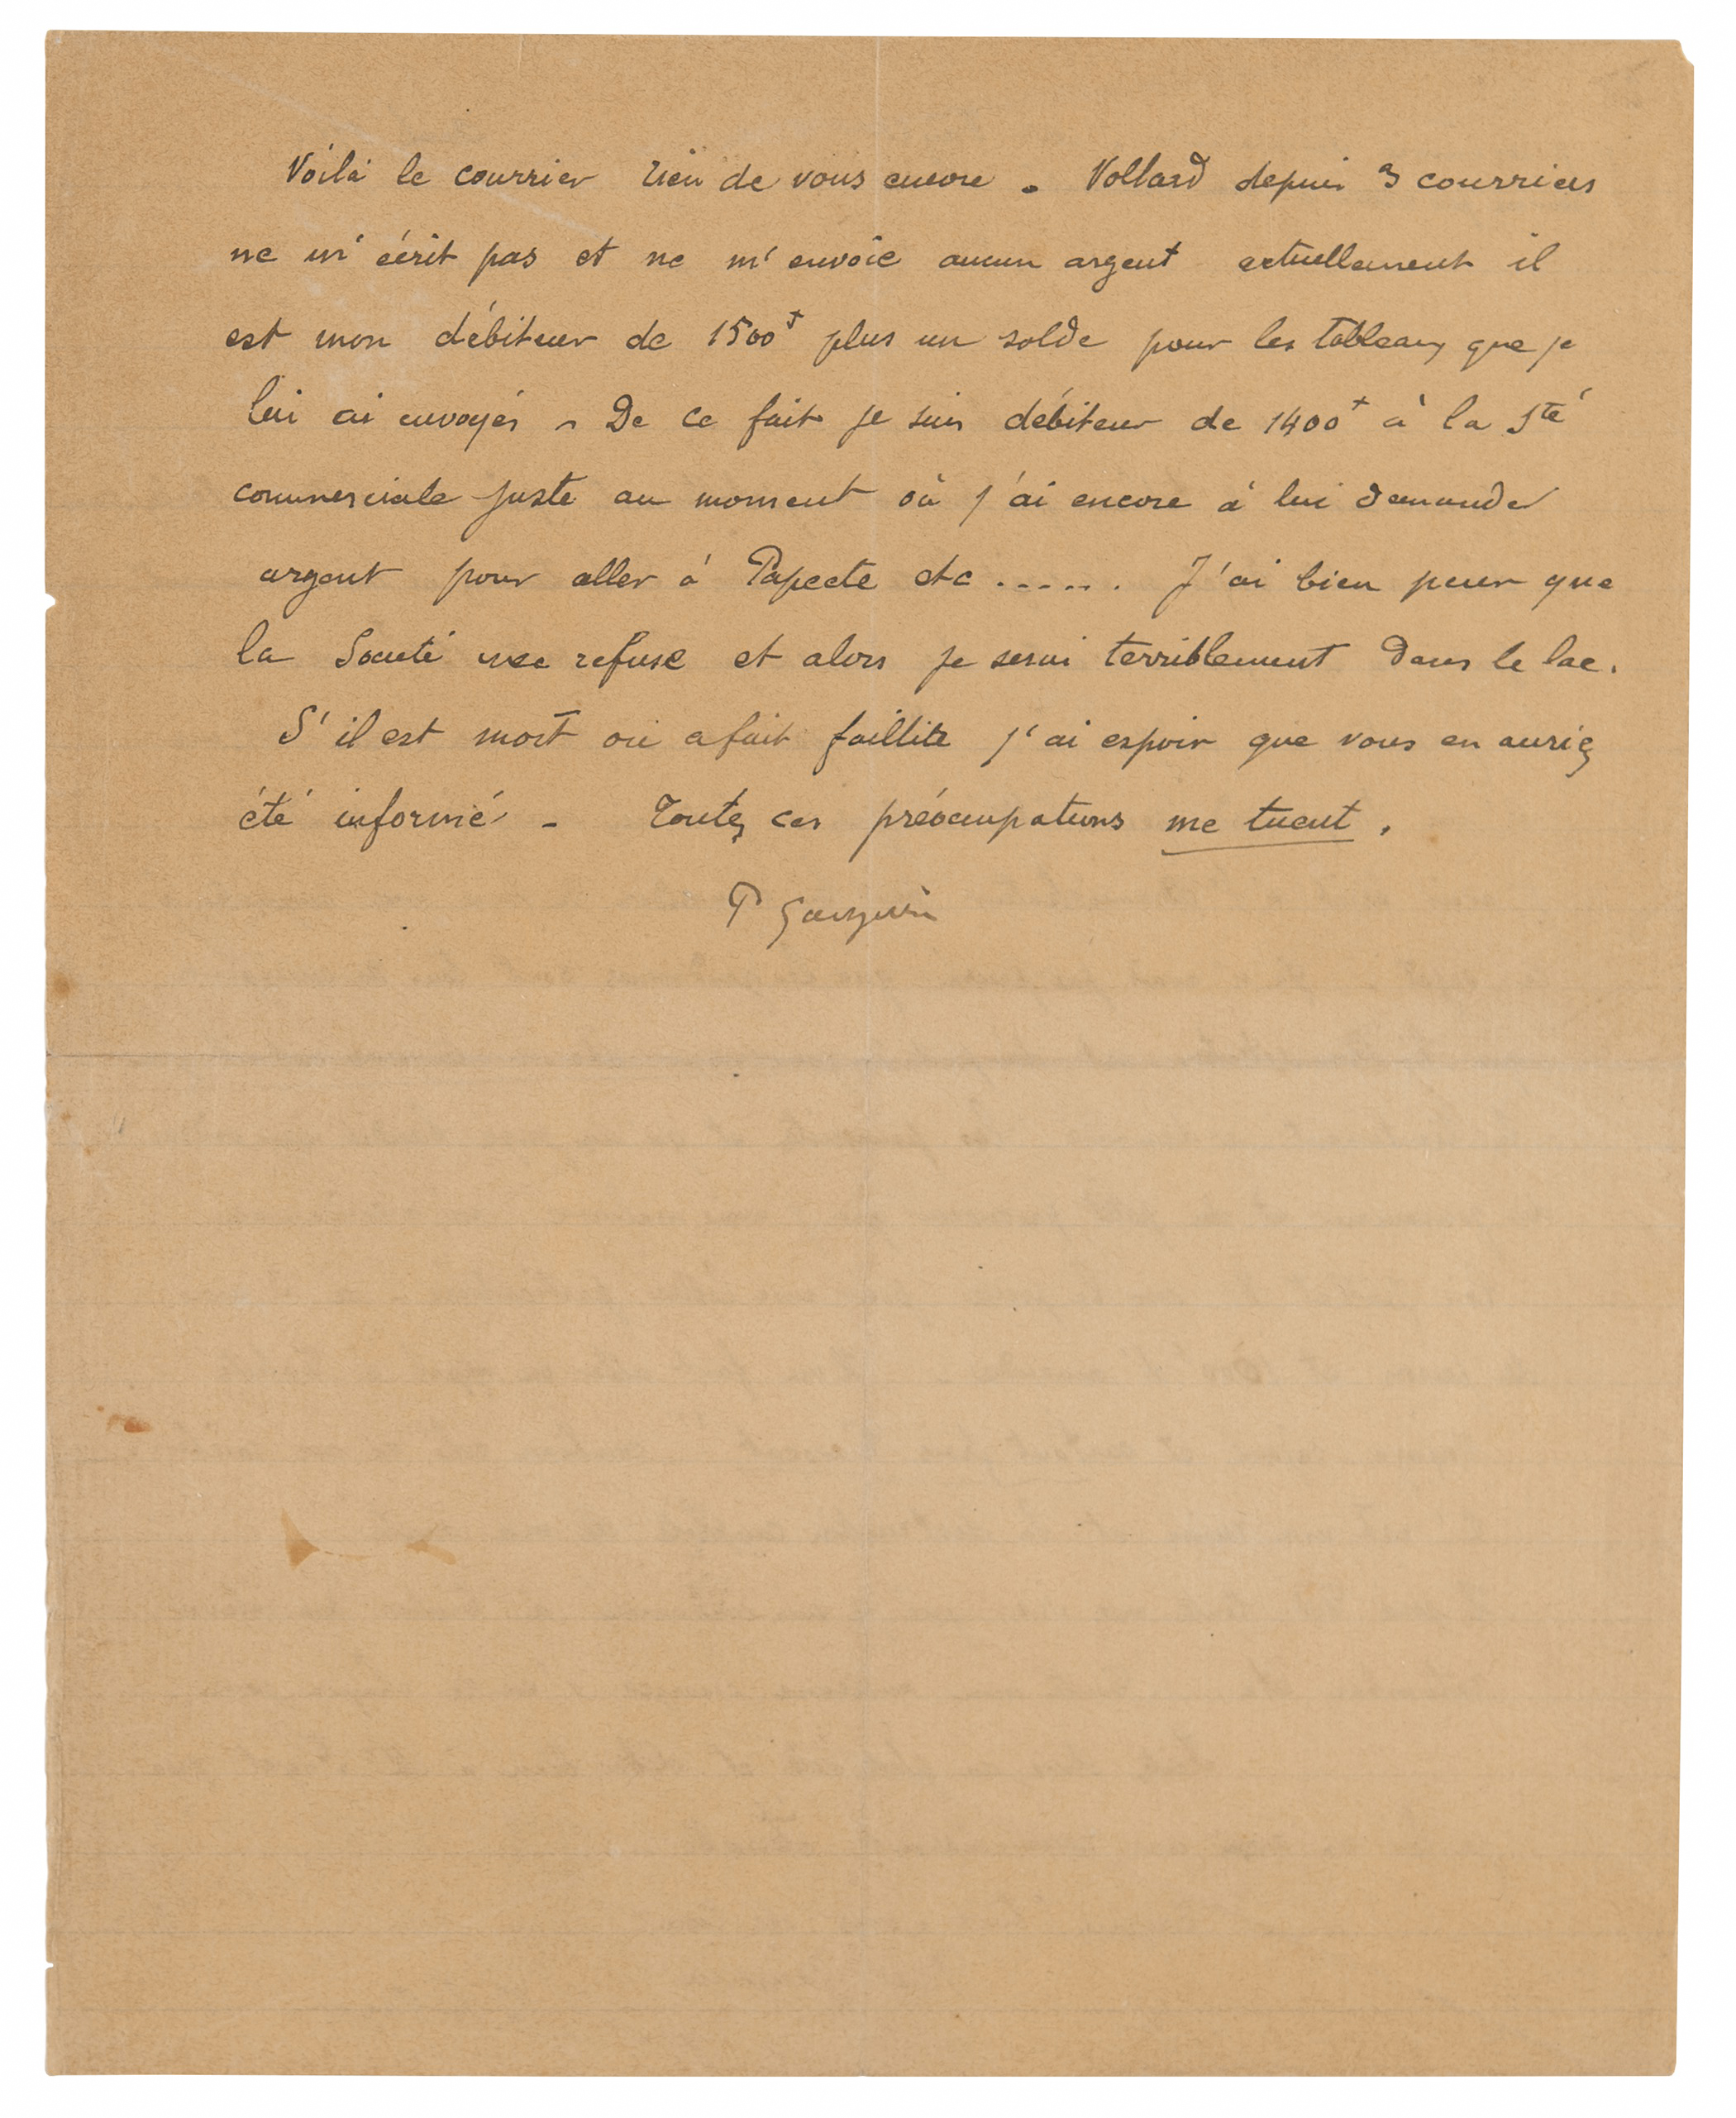 Voilà le courrier rien de vous encore . Vollard depuis 3 courriers
ne m'écrit pas et ne m'envoie aucun argent actuellement il
est mon débiteur de 1500f plus un solde pour les tableaux que je
lui ai envoyés - De ce fait je suis débiteur de 1400f à la Sté
commerciale juste au moment où j'ai encore à lui demander
argent pour aller à Papeete etc ...... J'ai bien peur que
la Société me refuse et alors je serai terriblement dans le lac.
S'il est mort ou a fait faillite j'ai espoir que vous en auriez
été informé - Toutes ces préoccupations me tuent .
P Gauguin